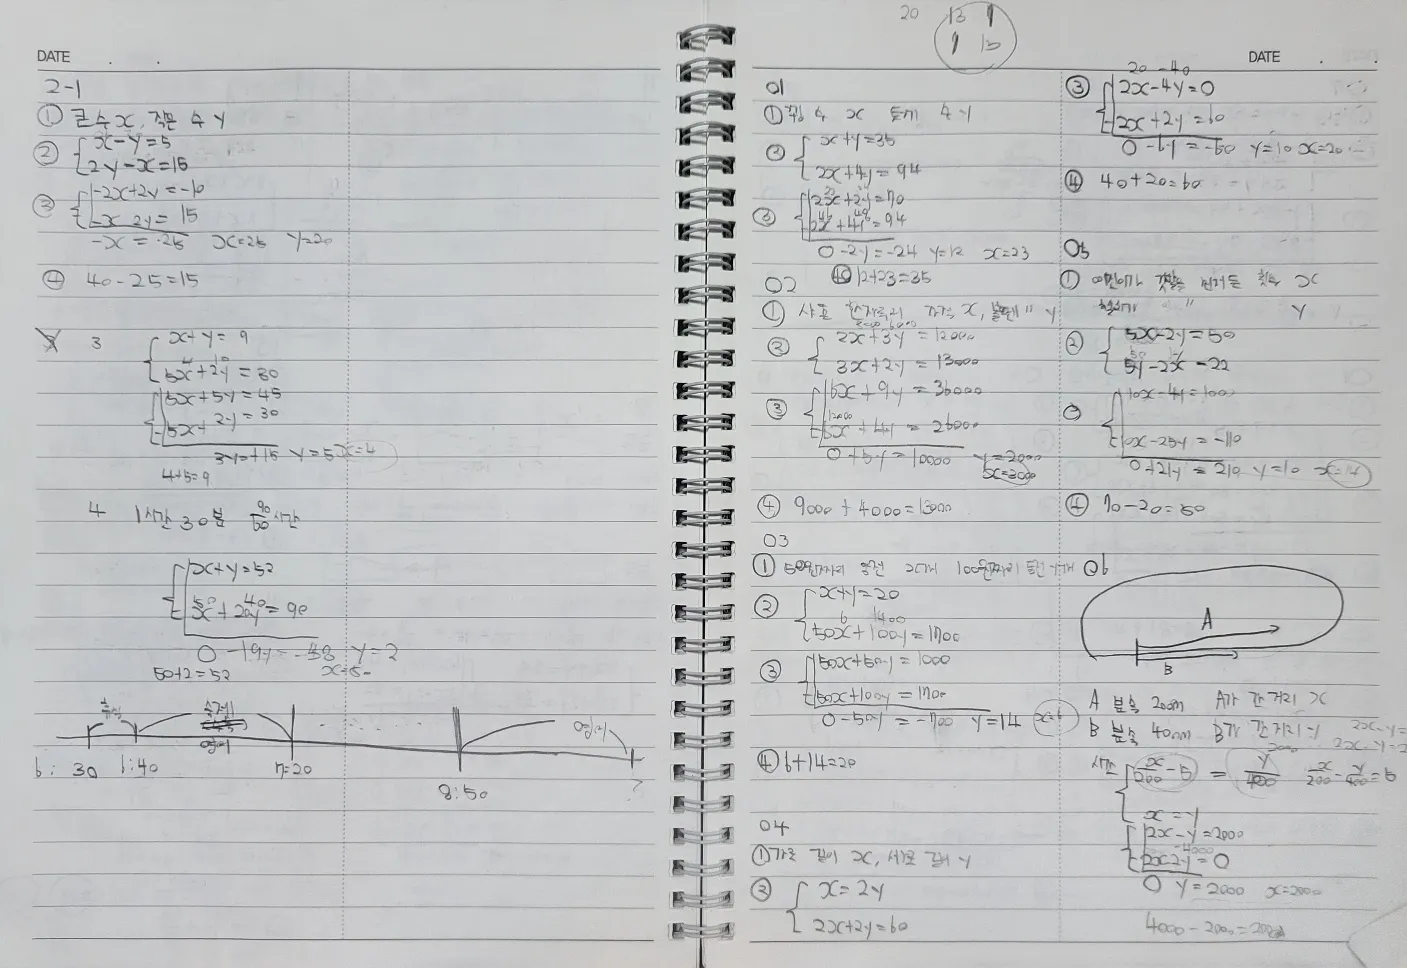 DATE . .
2-1
① 큰 수 x, 작은 수 y
② x-y=5
2y-x=15
③ -2x+2y=-10
-x 2y= 15
-x = -25 x=25 y=20
④ 40-25=15
3 x+y= 9
5x+2y=30
5x+5y=45
5x+ 2y=30
3y=+15 y=5 x=4
4+5=9
4 1시간 30분 90/60 시간
x+y=52
50 40
x+20y=90
0 -19y=-38 y=2
50+2=52
6:30 6:40 7:20
8:50
?
20 13 1
1 13
01
x+y=35
② 2x+4y=94
③ 2x+2y=70
2x+4y=94
0-2y=-24 y=12 x=23
④ 12+23=35
02
② 2x+3y=12000
3x+2y=13000
③ 6x+9y=36000
6x+4y=26000
0+5y=10000 y=2000
x=3000
④ 9000+4000=13000
03
① 50원짜리 동전 x개 100원짜리 동전 y개
② x+y=20
6 1400
50x+100y=1700
③ 50x+50y=1000
50x+100y=1700
0-50y=-700 y=14 x=6
④ 6+14=20
04
① 가로 길이 x, 세로 길이 y
② x=2y
2x+2y=60
DATE . .
20 -40
③ 2x-4y=0
2x+2y=60
0-6y=-60 y=10 x=20
④ 40+20=60
05
② 5x-2y=50
5y-2x=22
10x-4y=100
10x-25y=-110
0+21y=210 y=10 x=14
④ 70-20=50
06
A
B
A 분속 200m A가 간 거리 x
B 분속 400m B가 간 거리 y
시간 x/200-5 = y/400 x/200-y/400=5
x=y
2x-y=2000
2x-2y=0
0 y=2000 x=2000
4000-2000=2000